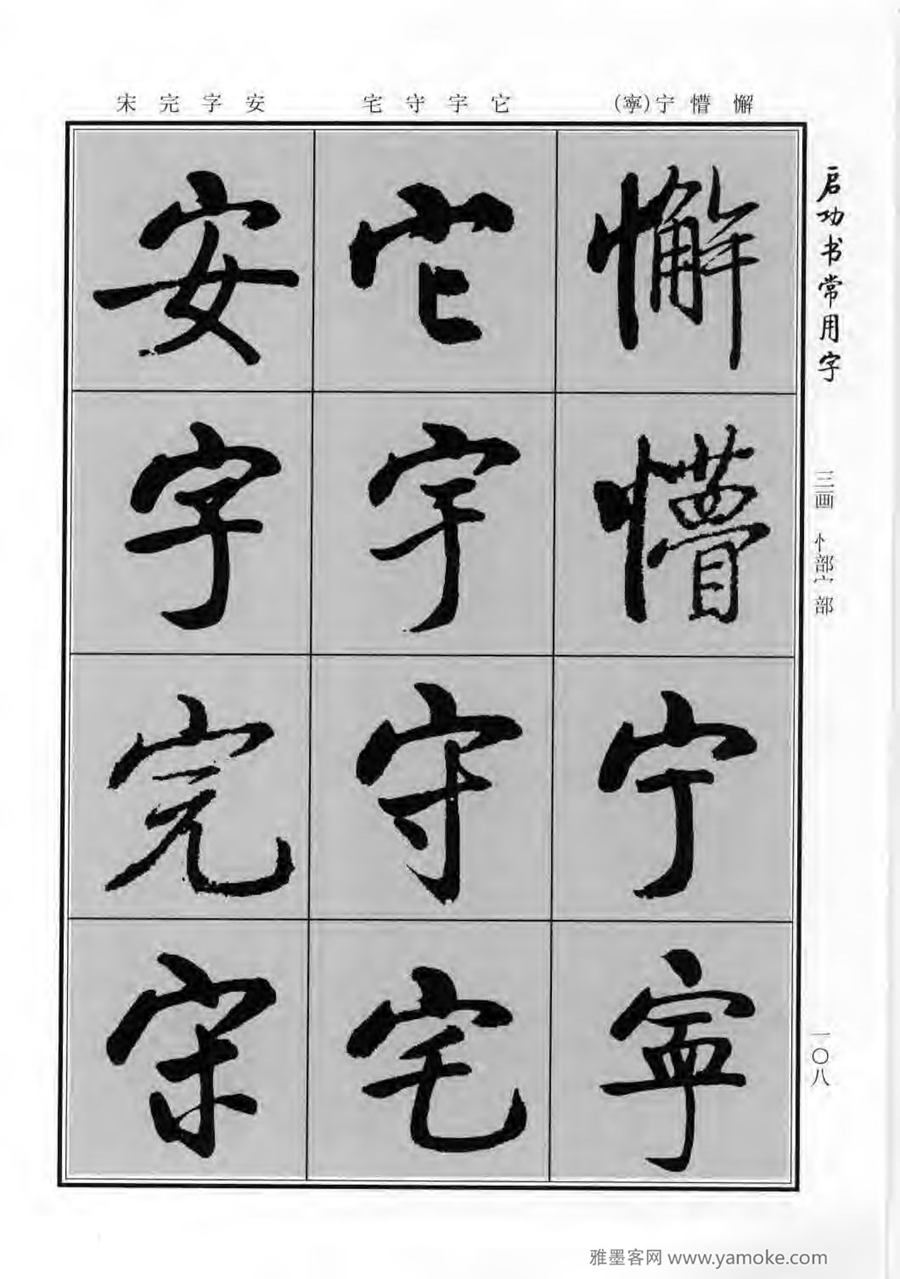 懈 懵 宁(寧)
它 宇 守 宅
安 字 完 宋
启功书常用字
三画 忄部 宀部
一〇八
懈懵宁寧
它宇守宅
安字完宋
雅墨客网 www.yamoke.com